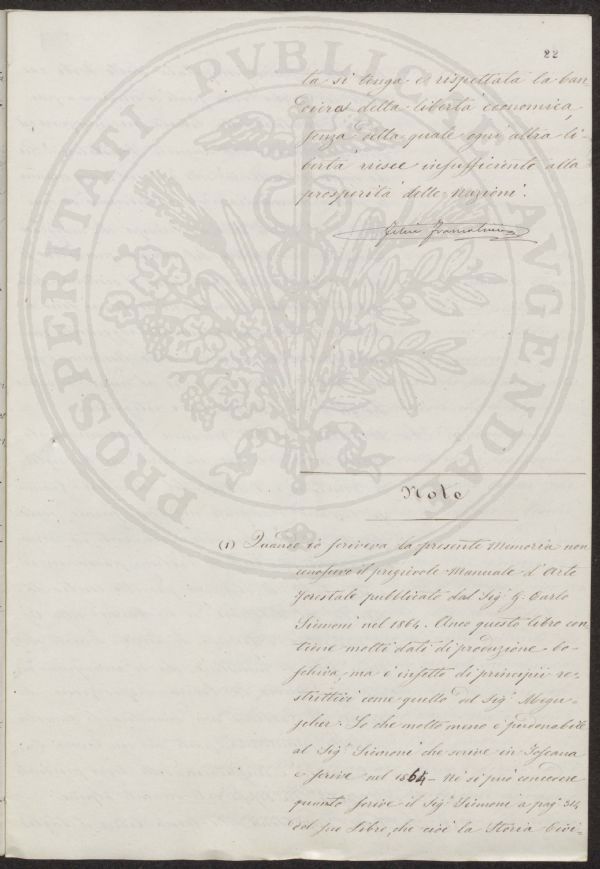 22
ta si tenga e rispettata la ban
diera della libertà economica,
senza della quale ogni altra li-
bertà riesce insufficiente alla
prosperità delle nazioni.
Felice Francolini
Note
(1) Quando io scriveva la presente Memoria non
conoscevo il pregievole Manuale d'Arte
Forestale pubblicato dal Sig.r G. Carlo
Siemoni nel 1864. Anco questo libro con
tiene molti dati di produzione bo-
schiva, ma è infetto di principii re-
strittivi come quello del Sig.r Megu-
scher. Lo che molto meno è perdonabile
al Sig.r Siemoni che scrive in Toscana
e scrive nel 1864 - Nè si può concedere
quanto scrive il Sig.r Siemoni a pag. 314
del suo Libro, che cioè la Storia Civi-
PROSPERITATI PVBLICAE AVGENDAE